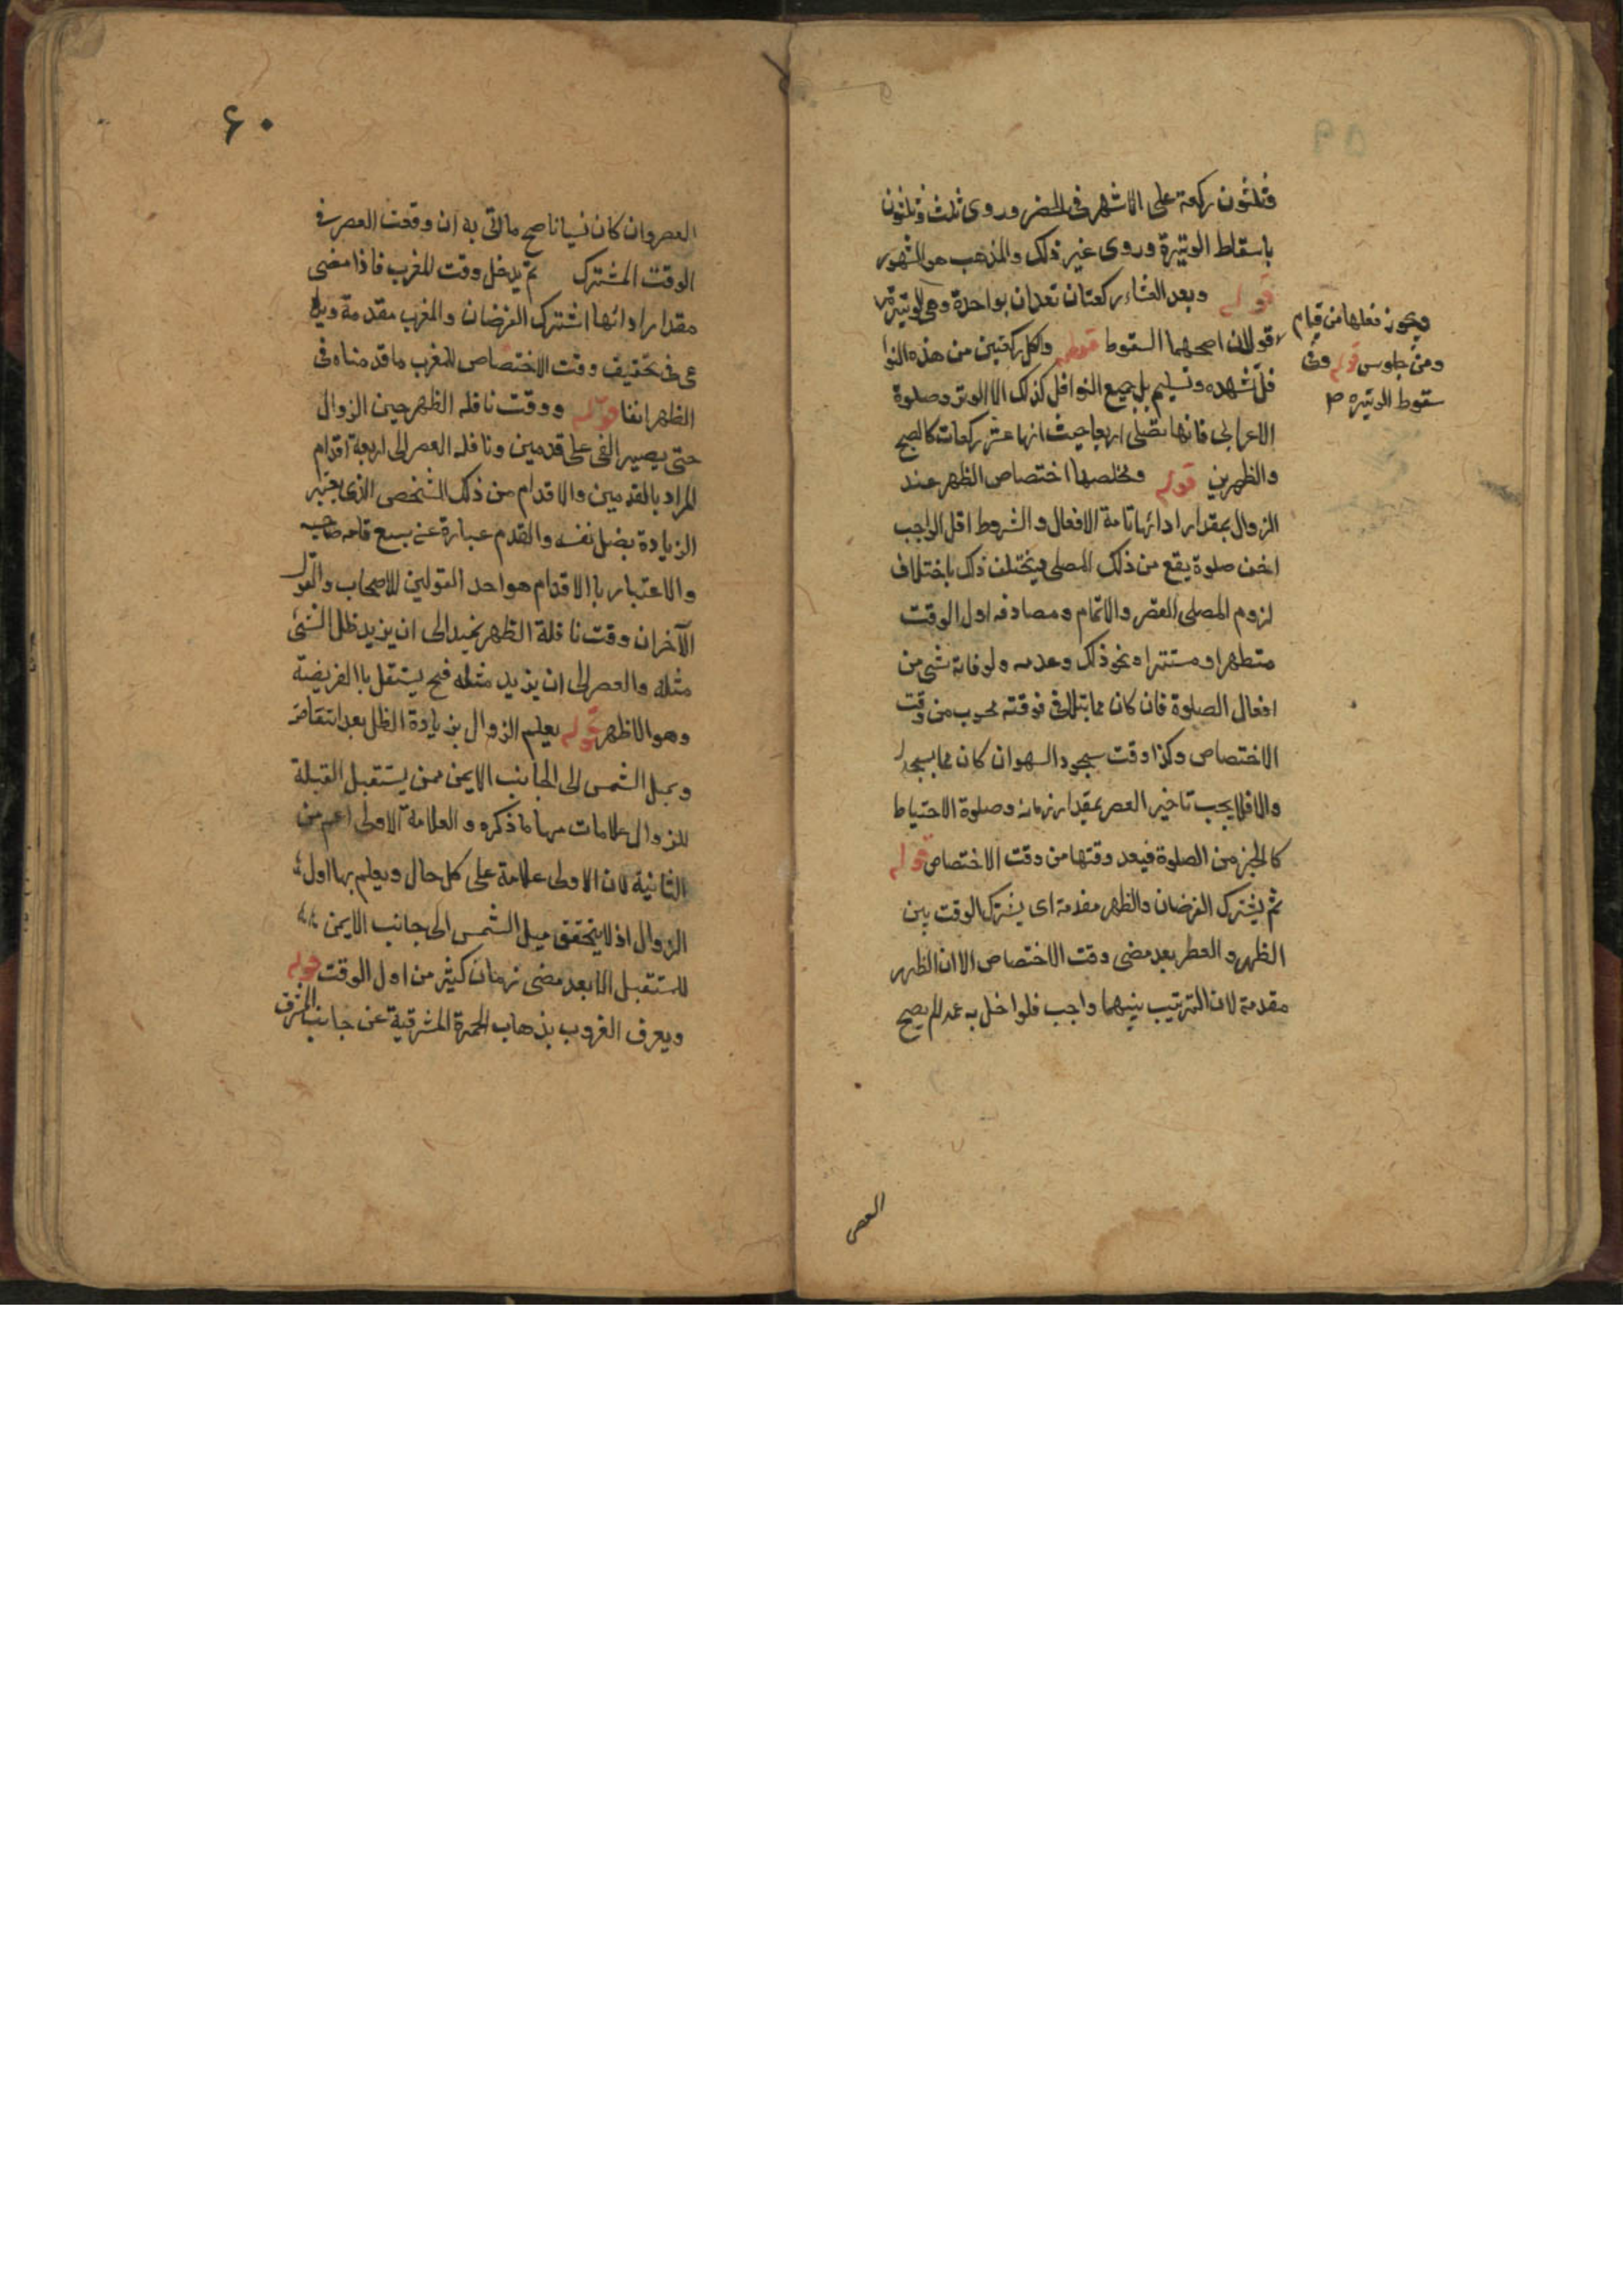 فثلثون ركعة على الاشهر فى الحضر وروى ثلث وثلثون
باسقاط الوتيرة وروى غير ذلك والمذهب هو المشهور
قوله وبعد العشاء ركعتان تعدان بواحدة وهى الوتيرة
ويجوز فعلها من قيام
ومن جلوس قوله وفى
سقوط الوتيره
قولان اصحهما السقوط قوله ولكل ركعتين من هذه النوا
فل تشهد وتسليم بل جميع النوافل كذلك الا الوتر وصلوة
الاعرابى فانها تصلى اربعا حيث انها عشر ركعات كالصبح
والظهرين قوله وملخصها اختصاص الظهر عند
الزوال بمقدار ادائها تامة الافعال والشروط اقل الواجب
اخف صلوة يقع من ذلك المصلى فيختلف ذلك باختلاف
لزوم المصلى القصر والاتمام ومصادفه اول الوقت
متطهرا ومستترا ونحو ذلك وعدمه ولو فاته شى من
افعال الصلوة فان كان مما يتلافى فوقته محسوب من وقت
الاختصاص وكذا وقت سجود السهو ان كان مما يسجد
والا فلا يجب تاخير العصر بمقدار زمانه وصلوة الاحتياط
كالجزء من الصلوة فيعد وقتها من وقت الاختصاص قوله
ثم يشترك الفرضان والظهر مقدمة اى يشترك الوقت بين
الظهر و العصر بعد مضى وقت الاختصاص الا ان الظهر
مقدمة لان الترتيب بينهما واجب فلو اخل به عمدا لم يصح
العصر
۶۰
العصر وان كان نسيانا صح ما اتى به ان وقعت العصر فى
الوقت المشترك ثم يدخل وقت المغرب فاذا مضى
مقدار ادائها اشترك الفرضان والمغرب مقدمة
فى تحقيق وقت الاختصاص للمغرب ما قدمناه فى
الظهر انفا قوله ووقت نافله الظهر حين الزوال
حتى يصير الفى على قدمين ونافله العصر الى اربعة اقدام
المراد بالقدمين والاقدام من ذلك الشخص الذى يعتبر
الزيادة بضل نفسه والقدم عبارة عن سبع قامه صاحبه
والاعتبار باالاقدام هو احد القولين للاصحاب والقول
الآخر ان وقت نافلة الظهر يمتد الى ان يزيد ظل الشئ
مثله والعصر الى ان يزيد مثله فح يستقل باالفريضة
وهو الاظهر قوله يعلم الزوال بزيادة الظل بعد انتقاصه
وبميل الشمس الى الجانب الايمن ممن يستقبل القبلة
للزوال علامات منها ما ذكره و العلامة الاولى اعم من
الثانية لان الاولى علامة على كل حال ويعلم بها اول
الزوال اذ لا يتحقق ميل الشمس الى جانب الايمن
للمستقبل الا بعد مضى زمان كثير من اول الوقت قوله
ويعرف الغروب بذهاب الحمرة المشرقية عن جانب المشرق